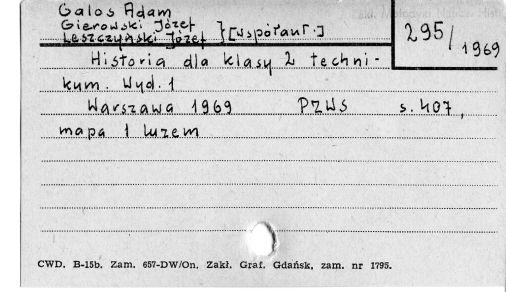 Galos Adam
Gierowski Józef
Leszczyński Józef } [współaut.]
295/1969
Historia dla klasy 2 techni-
kum. Wyd. 1
Warszawa 1969 PZWS s. 407,
mapa 1 luzem
CWD. B-15b. Zam. 657-DW/On. Zakł. Graf. Gdańsk, zam. nr 1795.